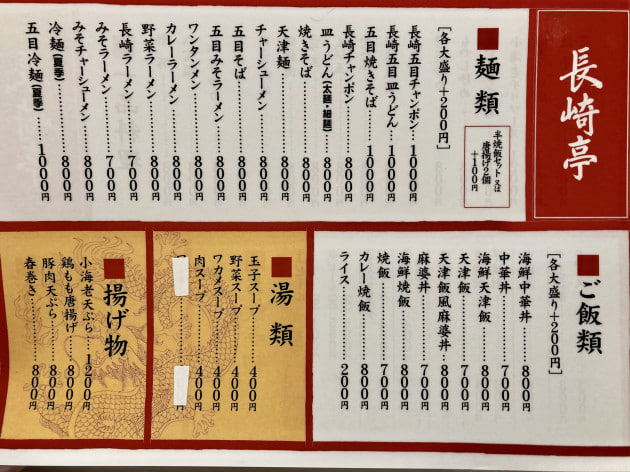 長崎亭
■麺類
半焼飯セット又は
唐揚げ2個
+100円
[各大盛り+200円]
長崎五目チャンポン…1000円
長崎五目皿うどん…1000円
五目焼きそば…1000円
長崎チャンポン…800円
皿うどん(太麺・細麺)…800円
焼きそば…800円
天津麺…800円
チャーシューメン…800円
五目そば…800円
五目みそラーメン…800円
ワンタンメン…800円
カレーラーメン…800円
野菜ラーメン…800円
長崎ラーメン…700円
みそラーメン…700円
みそチャーシューメン…800円
冷麺(夏季)…800円
五目冷麺(夏季)…1000円
■ご飯類
[各大盛り+200円]
海鮮中華丼…800円
中華丼…700円
海鮮天津飯…800円
天津飯…700円
天津飯風麻婆丼…800円
麻婆丼…700円
海鮮焼飯…800円
焼飯…700円
カレー焼飯…800円
ライス…200円
■湯類
玉子スープ…400円
野菜スープ…400円
ワカメスープ…400円
肉スープ…400円
■揚げ物
小海老天ぷら…1200円
鶏もも唐揚げ…800円
豚肉天ぷら…800円
春巻き…800円